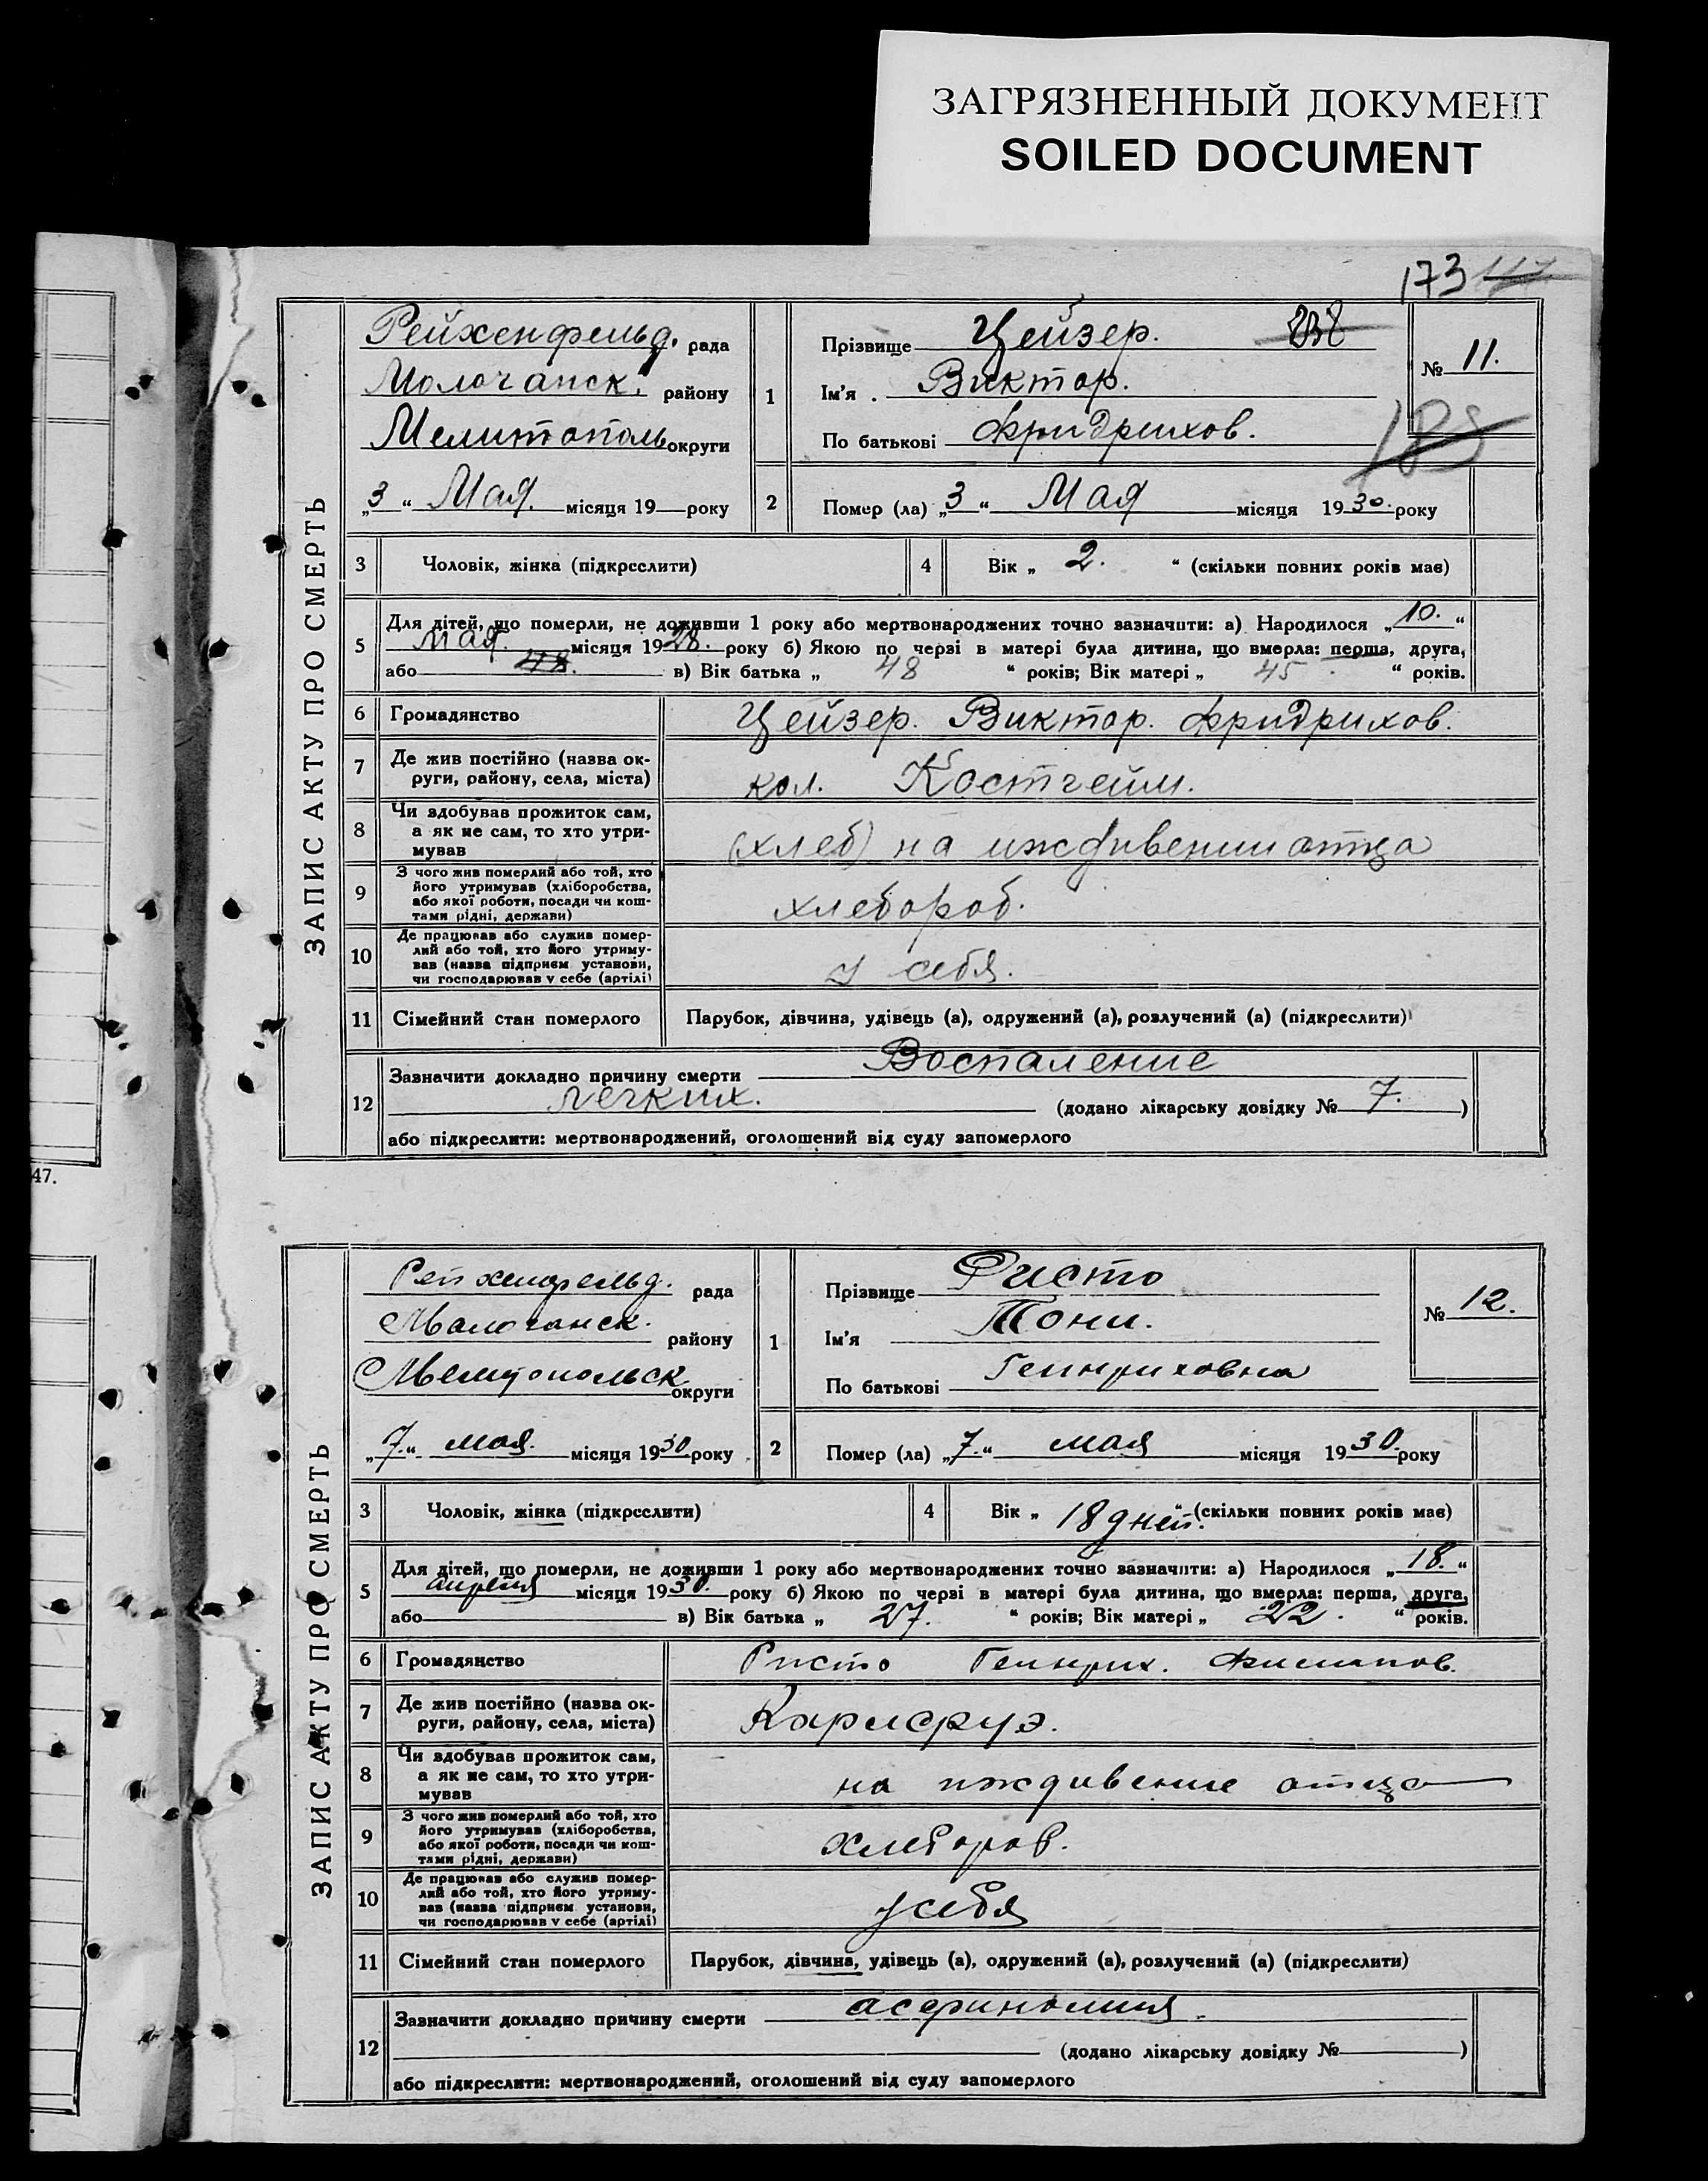 ЗАГРЯЗНЕННЫЙ ДОКУМЕНТ
SOILED DOCUMENT
173
ЗАПИС АКТУ ПРО СМЕРТЬ
Рейхенфельд. рада
Молочанск. району
Мелитополь округи
„3“ Мая. місяця 19 року
1
Прізвище Цейзер.
Ім'я . Виктор.
По батькові Фридрихов.
№ 11.
2 Помер (ла) „3“ Мая місяця 1930. року
3 Чоловік, жінка (підкреслити)
4 Вік „ 2. “ (скільки повних років має)
5 Для дітей, що померли, не доживши 1 року або мертвонароджених точно зазначити: а) Народилося „10.“
мая. місяця 1928. року б) Якою по черзі в матері була дитина, що вмерла: перша, друга,
або 48. в) Вік батька „ 48 “ років; Вік матері „ 45. “ років.
6 Громадянство Цейзер. Виктор. Фридрихов.
7 Де жив постійно (назва ок-
руги, району, села, міста) кол. Костгейм.
8 Чи здобував прожиток сам,
а як не сам, то хто утри-
мував (хлеб) на иждивении отца
9 З чого жив померлий або той, хто
його утримував (хліборобства,
або якої роботи, посади чи кош-
тами рідні, держави) хлебороб.
10 Де працював або служив помер-
лий або той, хто його утриму-
вав (назва підприєм установи,
чи господарював у себе (артілі) у себя.
11 Сімейний стан померлого Парубок, дівчина, удівець (а), одружений (а), розлучений (а) (підкреслити)
12 Зазначити докладно причину смерти Воспаление
легких. (додано лікарську довідку № 7. )
або підкреслити: мертвонароджений, оголошений від суду запомерлого
47.
ЗАПИС АКТУ ПРО СМЕРТЬ
Рейхенфельд. рада
Молочанск. району
Мелитопольск округи
„7.“ мая. місяця 1930 року
1
Прізвище Ристо
Ім'я Тони.
По батькові Генриховна
№ 12.
2 Помер (ла) „7.“ мая місяця 1930. року
3 Чоловік, жінка (підкреслити)
4 Вік „ 18 дней. “ (скільки повних років має)
5 Для дітей, що померли, не доживши 1 року або мертвонароджених точно зазначити: а) Народилося „18.“
апреля місяця 1930. року б) Якою по черзі в матері була дитина, що вмерла: перша, друга,
або в) Вік батька „ 27. “ років; Вік матері „ 22. “ років.
6 Громадянство Ристо Генрих. Филипов.
7 Де жив постійно (назва ок-
руги, району, села, міста) Карлсруэ.
8 Чи здобував прожиток сам,
а як не сам, то хто утри-
мував на иждивение отца
9 З чого жив померлий або той, хто
його утримував (хліборобства,
або якої роботи, посади чи кош-
тами рідні, держави) хлебороб.
10 Де працював або служив помер-
лий або той, хто його утриму-
вав (назва підприєм установи,
чи господарював у себе (артілі) у себя
11 Сімейний стан померлого Парубок, дівчина, удівець (а), одружений (а), розлучений (а) (підкреслити)
12 Зазначити докладно причину смерти
(додано лікарську довідку № )
або підкреслити: мертвонароджений, оголошений від суду запомерлого